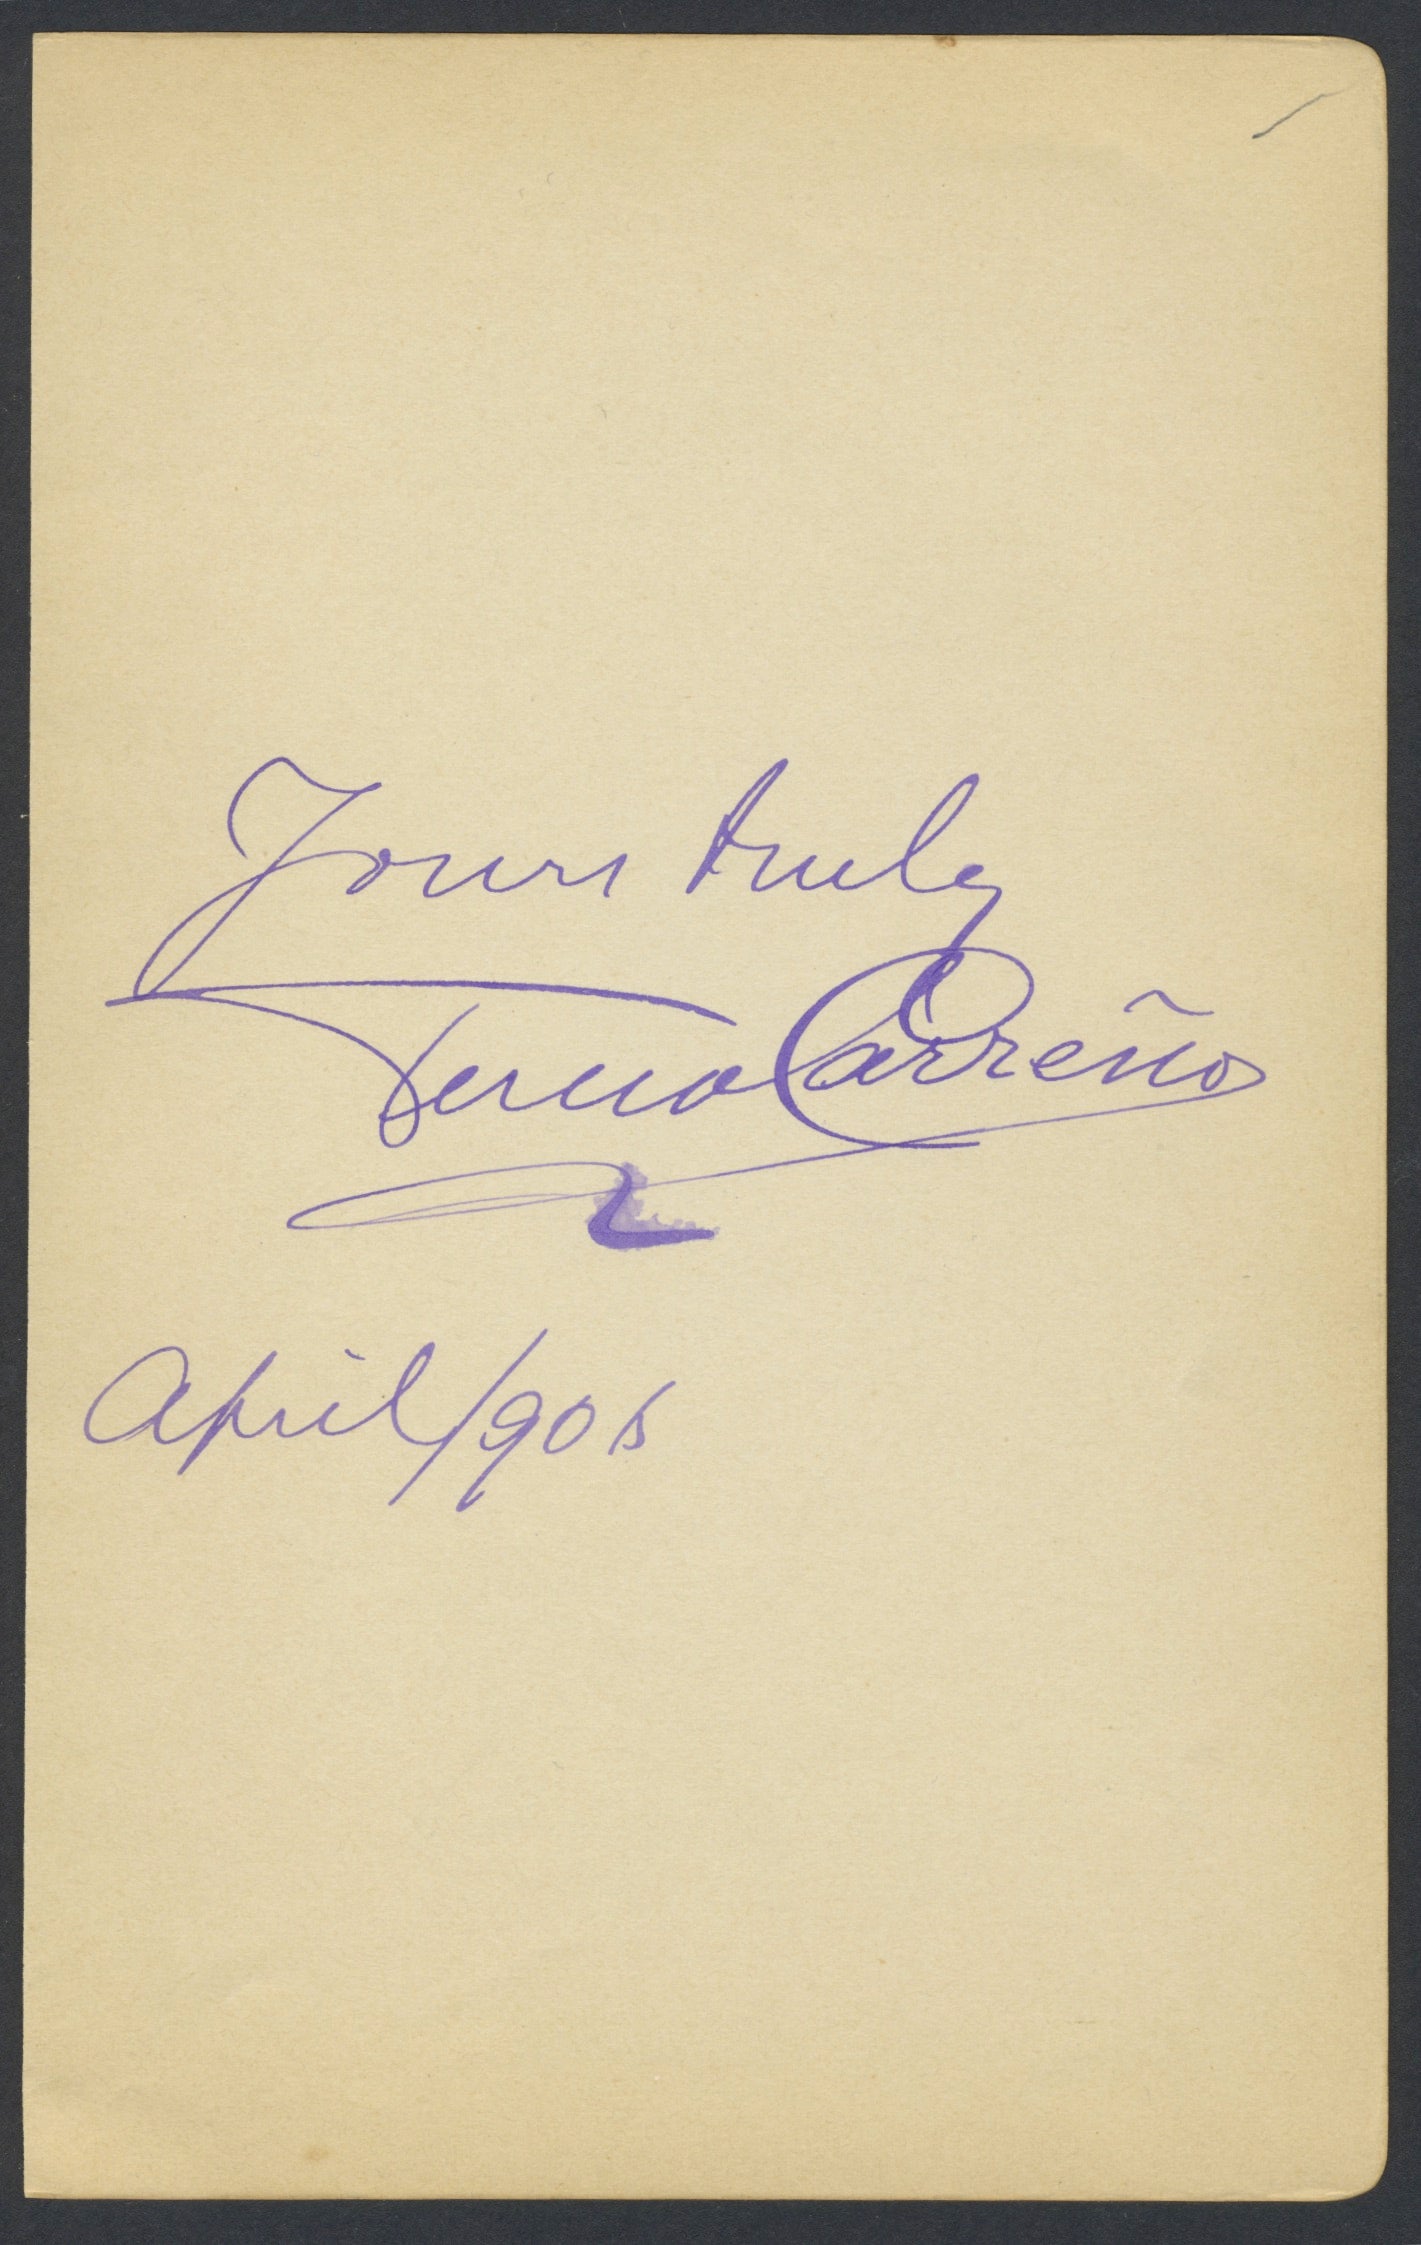 Yours truly
Teresa Carreño
April